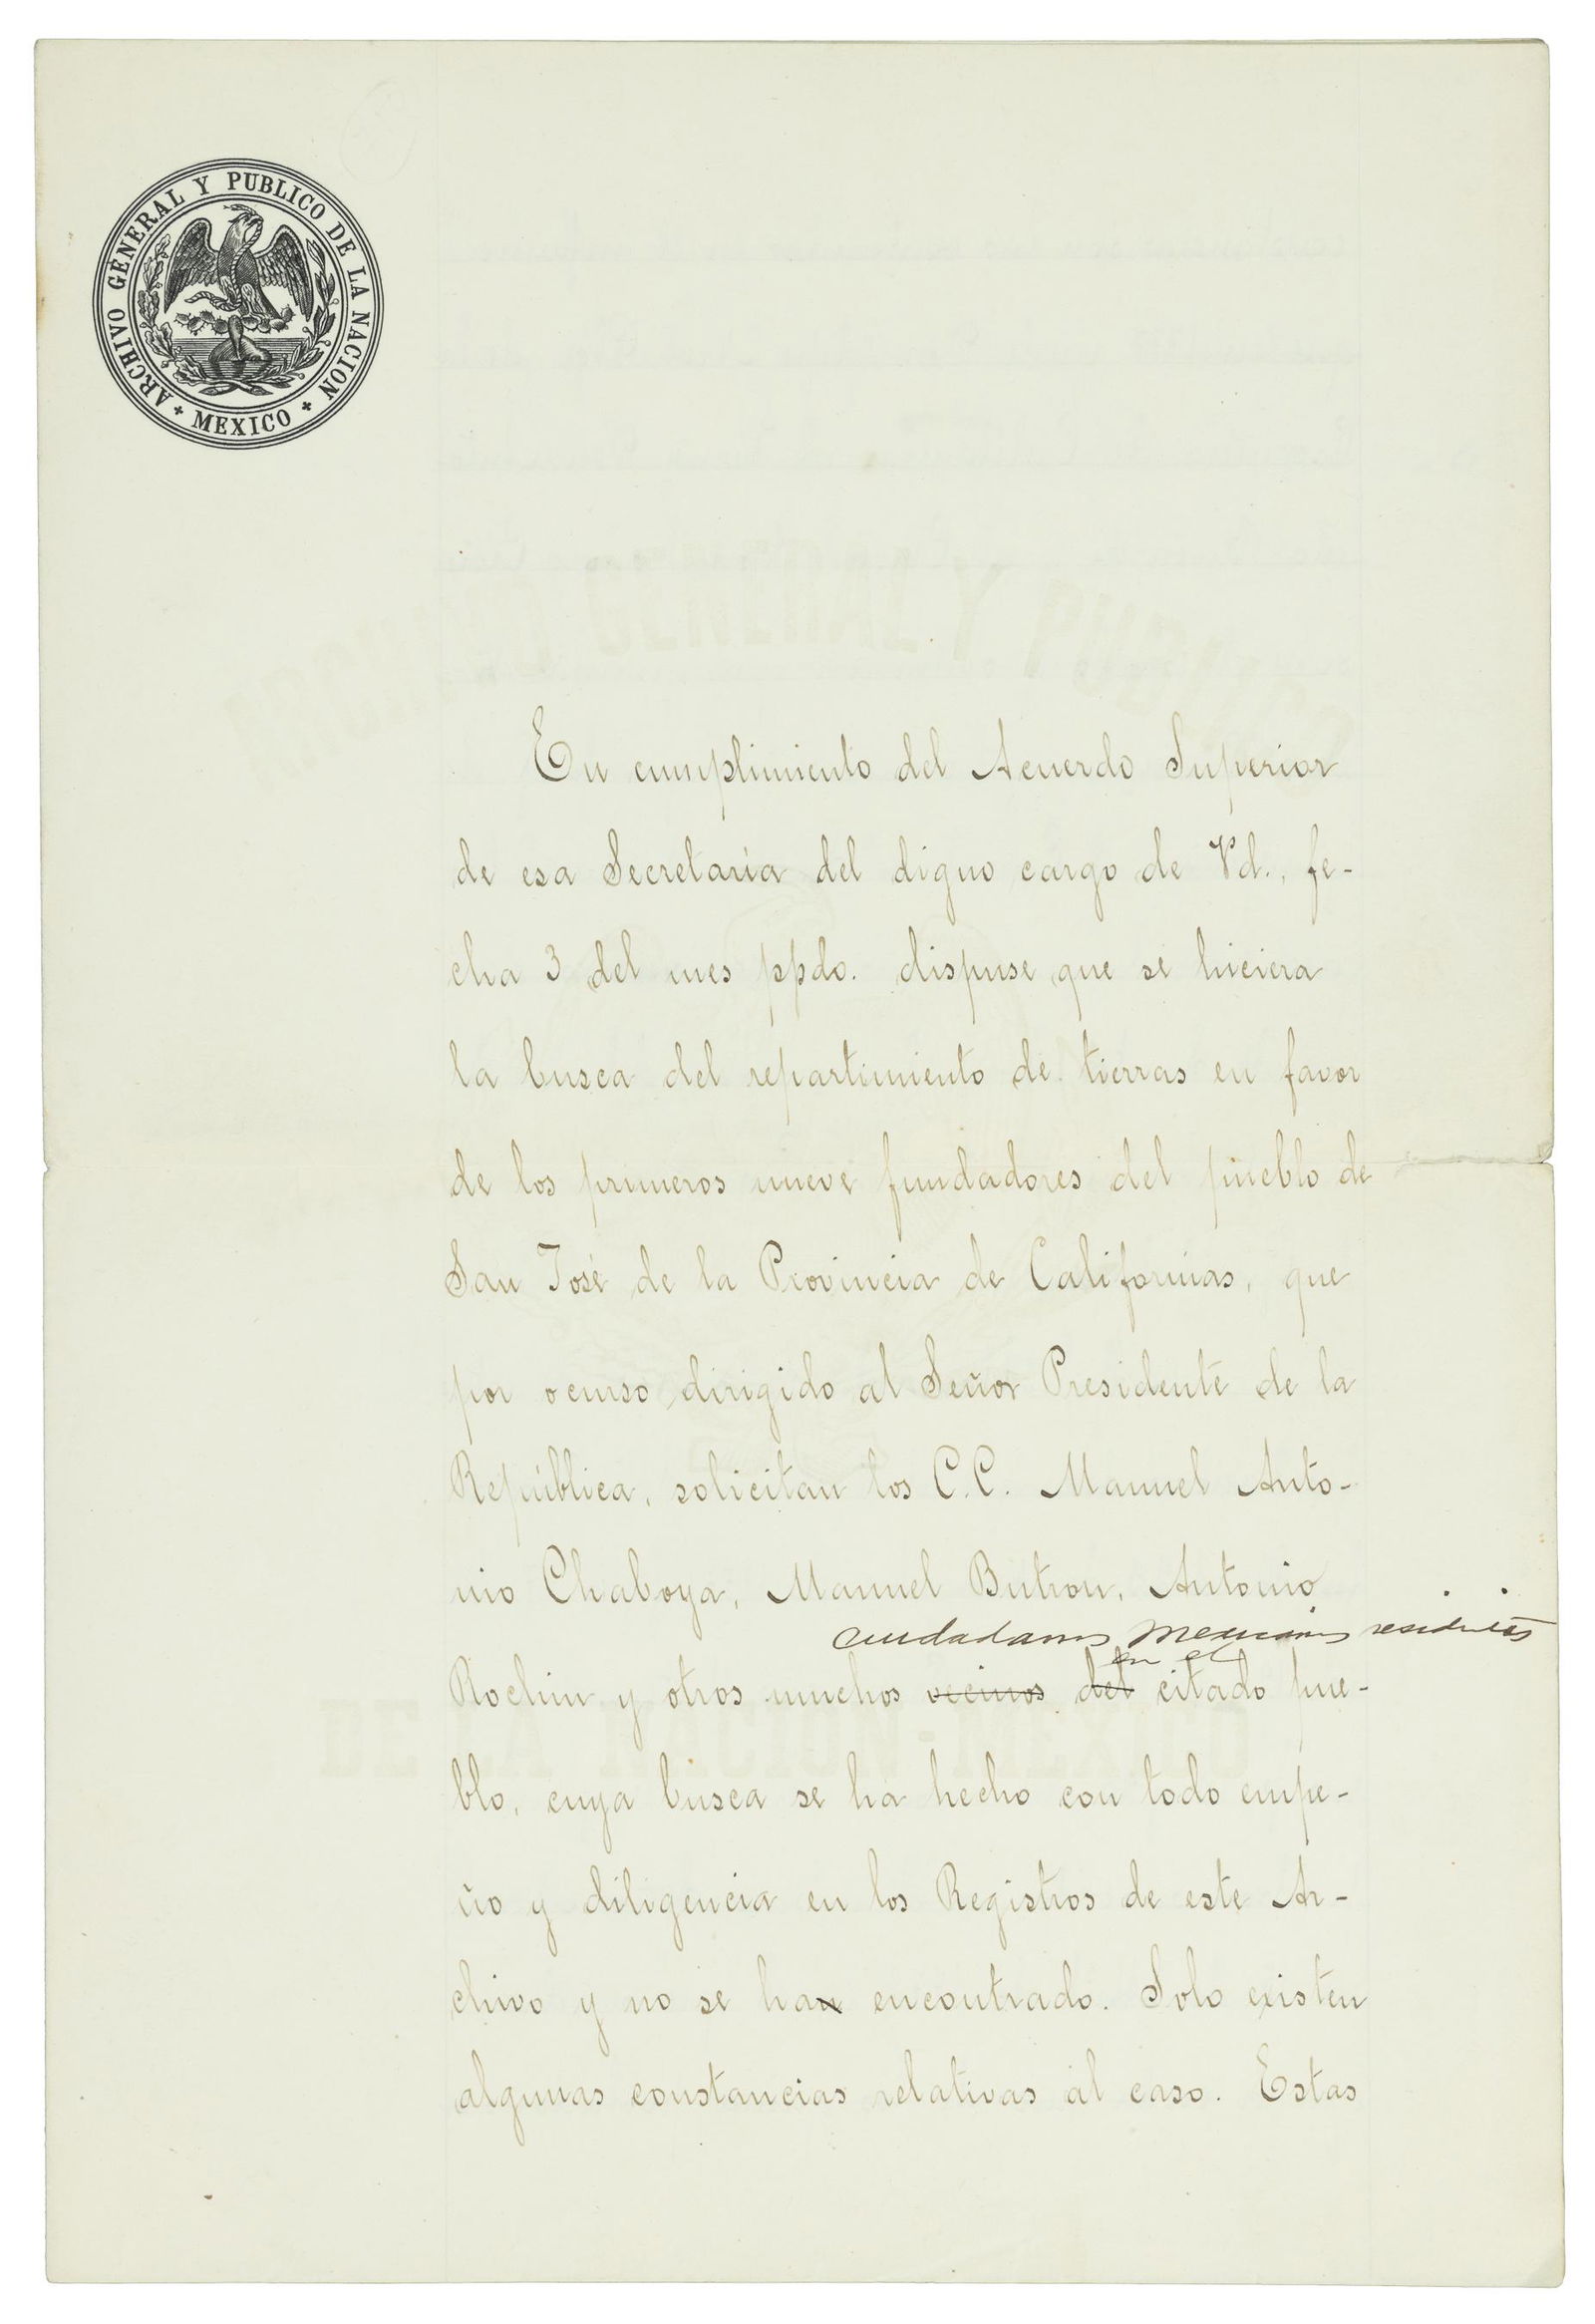 ARCHIVO GENERAL Y PUBLICO DE LA NACION
MEXICO
ARCHIVO GENERAL Y PUBLICO
En cumplimiento del Acuerdo Superior
de esa Secretaría del digno cargo de Vd., fe-
cha 3 del mes ppdo. dispuse que se hiciera
la busca del repartimiento de tierras en favor
de los primeros nueve fundadores del pueblo de
San José de la Provincia de Californias, que
por ocurso dirigido al Señor Presidente de la
República, solicitan los C.C. Manuel Anto-
nio Chaboya, Manuel Butron, Antonio
ciudadanos mexicanos residentes
en el
Rochin y otros muchos vecinos del citado pue-
DE LA NACION-MEXICO
blo, cuya busca se ha hecho con todo empe-
ño y diligencia en los Registros de este Ar-
chivo y no se han encontrado. Solo existen
algunas constancias relativas al caso. Estas